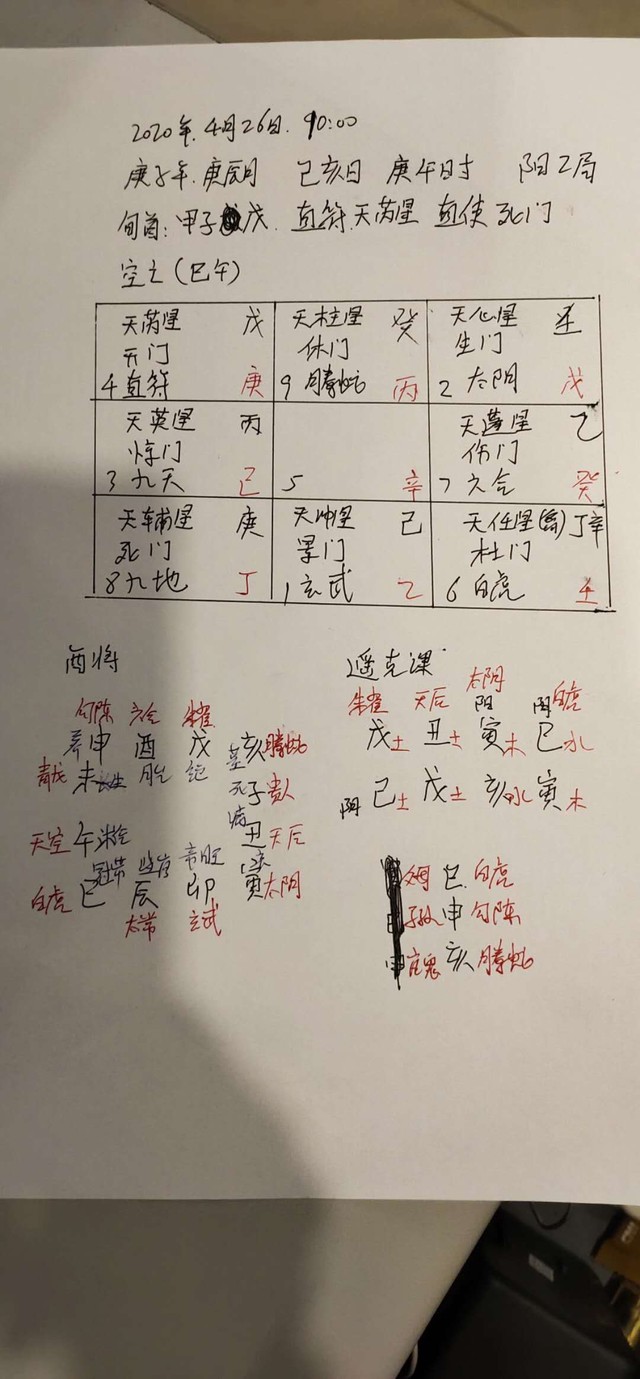 2020年.4月26日.10:00
庚子年.庚辰月 己亥日 庚午时 阳2局
旬首:甲子戊. 直符.天芮星 直使死门
空亡(巳午)
天芮星 戊 天柱星 癸 天心星 壬
开门 休门 生门
4直符 庚 9腾蛇 丙 2太阴 戊
天英星 丙 天蓬星 乙
惊门 伤门
3九天 己 5 辛 7六合 癸
天辅星 庚 天冲星 己 天任星(禽)丁辛
死门 景门 杜门
8九地 丁 1玄武 乙 6白虎 壬
酉将 遥克课
勾陈 六合 朱雀 朱雀 天后 太阴 阳 阴 白虎
养申 酉 戌 亥腾蛇 戌土 丑土 寅木 巳水
青龙 未长生 胎 绝 死子贵人 阴 巳土 戌土 亥水 寅木
天空 午沐浴 病丑天后
冠带 临官 帝旺 衰
白虎 巳 辰 卯 寅太阴 巳 白虎
太常 玄武 子孙 申 勾陈
官鬼 亥 腾蛇